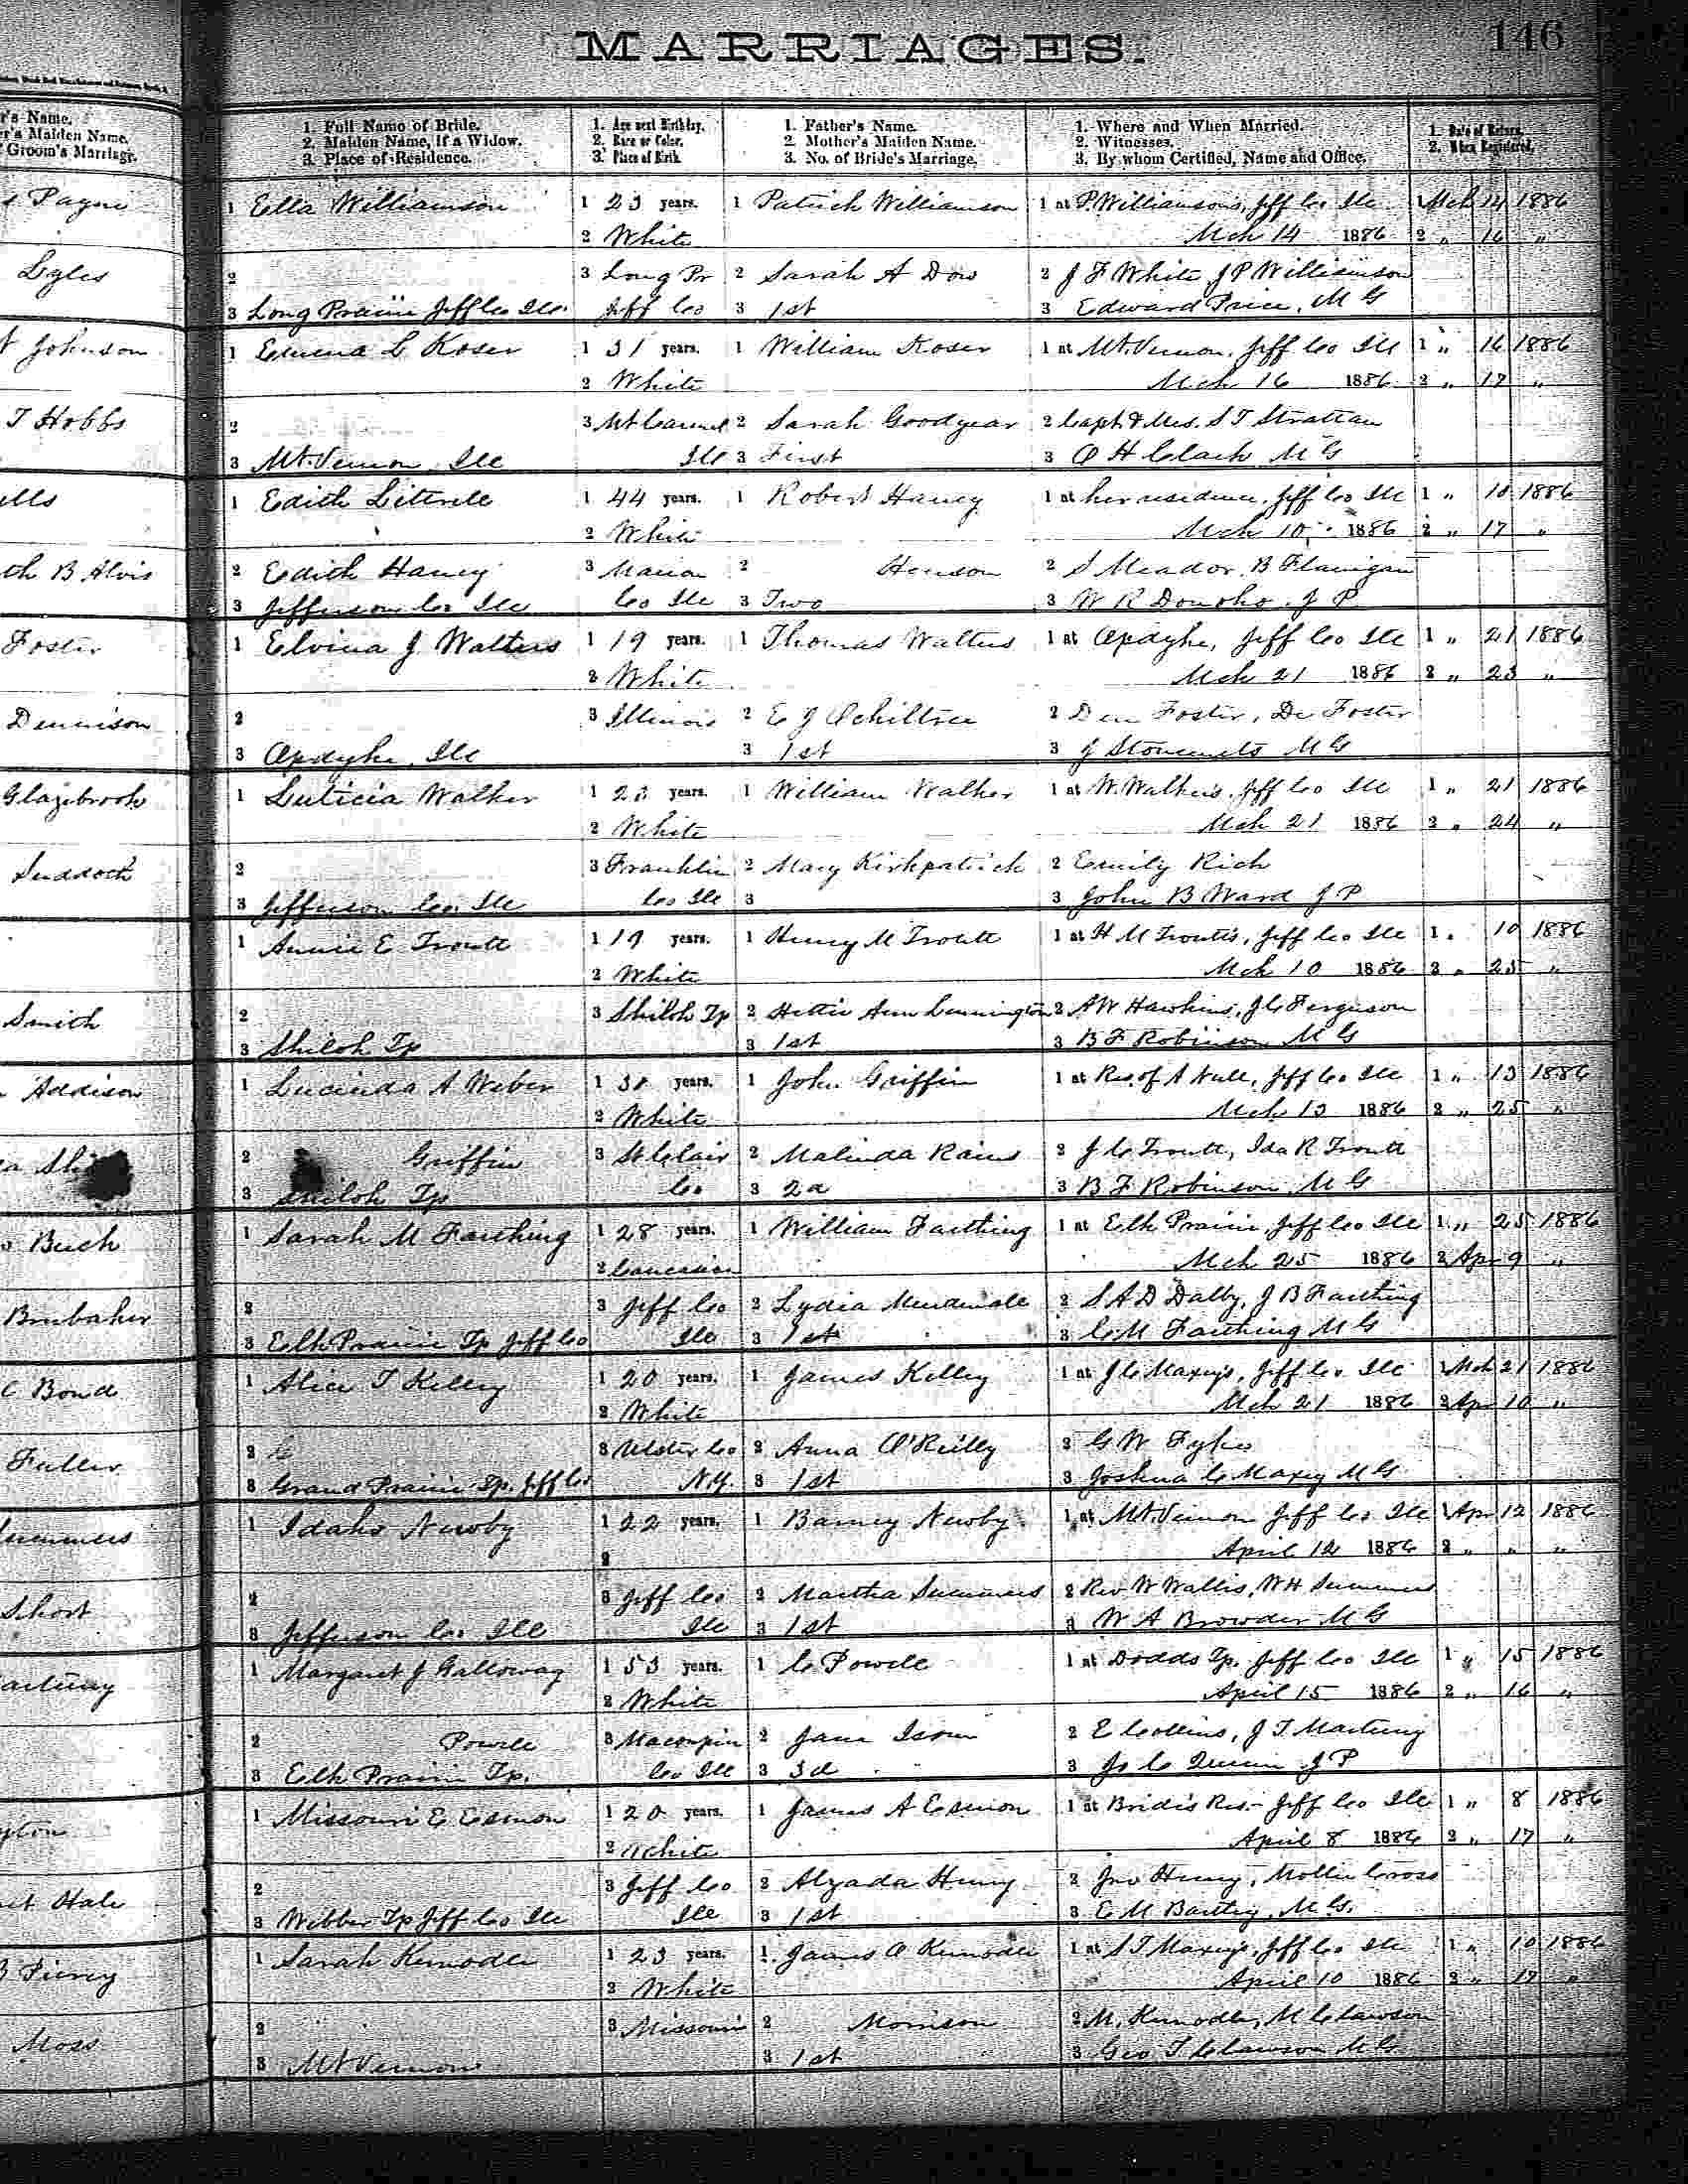 MARRIAGES.
146
r's Name.
er's Maiden Name.
Groom's Marriage.
1. Full Name of Bride.
2. Maiden Name, If a Widow.
3. Place of Residence.
1. Age next Birthday.
2. Race or Color.
3. Place of Birth.
1. Father's Name.
2. Mother's Maiden Name.
3. No. of Bride's Marriage.
1. Where and When Married.
2. Witnesses.
3. By whom Certified, Name and Office.
1. Date of Return.
2. When Registered.
s Payne 1 Ella Williamson 1 23 years. 1 Patrick Williamson 1 at P. Williamsons, Jeff Co Ill 1 Mch 14 1886
2 White Mch 14 1886 2 " 16 "
Lyles 2 3 Long Pr 2 Sarah A Dow 2 J F White J P Williamson
3 Long Prairie Jeff Co Ill. Jeff Co 3 1st 3 Edward Price, M G
Johnson 1 Emma L Koser 1 31 years. 1 William Koser 1 at Mt. Vernon, Jeff Co Ill 1 " 16 1886
2 White Mch 16 1886 2 " 17 "
T Hobbs 2 3 Mt Carmel 2 Sarah Goodyear 2 Capt & Mrs. S T Strattan
3 Mt. Vernon, Ill Ill 3 First 3 O H Clark M G
ells 1 Edith Littrell 1 44 years. 1 Robert Haney 1 at her residence, Jeff Co Ill 1 " 10 1886
2 White Mch 10, 1886 2 " 17 "
th B Alvis 2 Edith Haney 3 Marion 2 Henson 2 S Meador, B Flanigan
3 Jefferson Co Ill Co Ill 3 Two 3 W R Donoho, J P
Foster 1 Elvina J Walters 1 19 years. 1 Thomas Walters 1 at Opdyke, Jeff Co Ill 1 " 21 1886
2 White Mch 21 1886 2 " 23 "
Dennison 2 3 Illinois 2 E J Ochiltree 2 Foster, Foster
3 Opdyke, Ill 3 1st 3 J Stonecifer M G
Glazebrook 1 Luticia Walker 1 23 years. 1 William Walker 1 at W. Walkers, Jeff Co Ill 1 " 21 1886
2 White Mch 21 1886 2 " 24 "
Suddoth 2 3 Franklin 2 Mary Kirkpatrick 2 Emily Rich
3 Jefferson Co. Ill Co Ill 3 3 John B Ward J P
1 Annie E Troutt 1 19 years. 1 Henry M Troutt 1 at H M Troutts, Jeff Co Ill 1 " 10 1886
2 White Mch 10 1886 2 " 25 "
Smith 2 3 Shiloh Tp 2 Hettie Ann Cunnington 2 A W Hawkins, J C Ferguson
3 Shiloh Tp 3 1st 3 B F Robinson M G
Addison 1 Lucinda A Weber 1 years. 1 John Griffin 1 at Res. of A Hull, Jeff Co Ill 1 " 13 1886
2 White Mch 13 1886 2 " 25 "
2 Griffin 3 St Clair 2 Malinda Rains 2 J C Troutt, Ida R Troutt
3 Shiloh Tp Co 3 2d 3 B F Robinson, M G
Buck 1 Sarah M Farthing 1 28 years. 1 William Farthing 1 at Elk Prairie, Jeff Co Ill 1 " 25 1886
2 Caucasian Mch 25 1886 2 Apr 9 "
Brubaker 2 3 Jeff Co 2 Lydia 2 S A D Dalby, J B Farthing
3 Elk Prairie Tp Jeff Co Ill 3 1st 3 C M Farthing M G
C Bond 1 Alice T Kelley 1 20 years. 1 James Kelley 1 at J C Maxey's, Jeff Co Ill 1 Mch 21 1886
2 White Mch 21 1886 2 Apr 10 "
Fuller 2 3 Ulster Co 2 Anna O'Reilly 2 G W Fyke
3 Grand Prairie Tp. Jeff Co N.Y. 3 1st 3 Joshua C Maxey M G
1 Idaho Newby 1 22 years. 1 Barney Newby 1 at Mt. Vernon Jeff Co Ill 1 Apr 12 1886
2 April 12 1886 2 " " "
Short 2 3 Jeff Co 2 Martha Summers 2 Rev W Wallis, W H Summers
3 Jefferson Co Ill Ill 3 1st 3 W A Browder M G
1 Margaret J Galloway 1 53 years. 1 C Powell 1 at Dodds Tp. Jeff Co Ill 1 " 15 1886
2 White April 15 1886 2 " 16 "
2 Powell 3 Macoupin 2 Jane Isom 2 E Collins, J T
3 Elk Prairie Tp. Co Ill 3 3d 3 Quinn J P
1 Missouri E Esmon 1 20 years. 1 James A Esmon 1 at Bride's Res. Jeff Co Ill 1 " 8 1886
2 White April 8 1886 2 " 17 "
Hale 2 3 Jeff Co 2 Alzada Henry 2 Jno Henry, Mollie Cross
3 Webber Tp Jeff Co Ill Ill 3 1st 3 C M Baitey, M G.
Piercy 1 Sarah Kernodle 1 23 years. 1 James O Kernodle 1 at S T Maxey's, Jeff Co Ill 1 " 10 1886
2 White April 10 1886 2 " 17 "
Moss 2 3 Missouri 2 Morrison 2 M. Kernodle, M Clawson
3 Mt Vernon 3 1st 3 Geo T Clawson M G